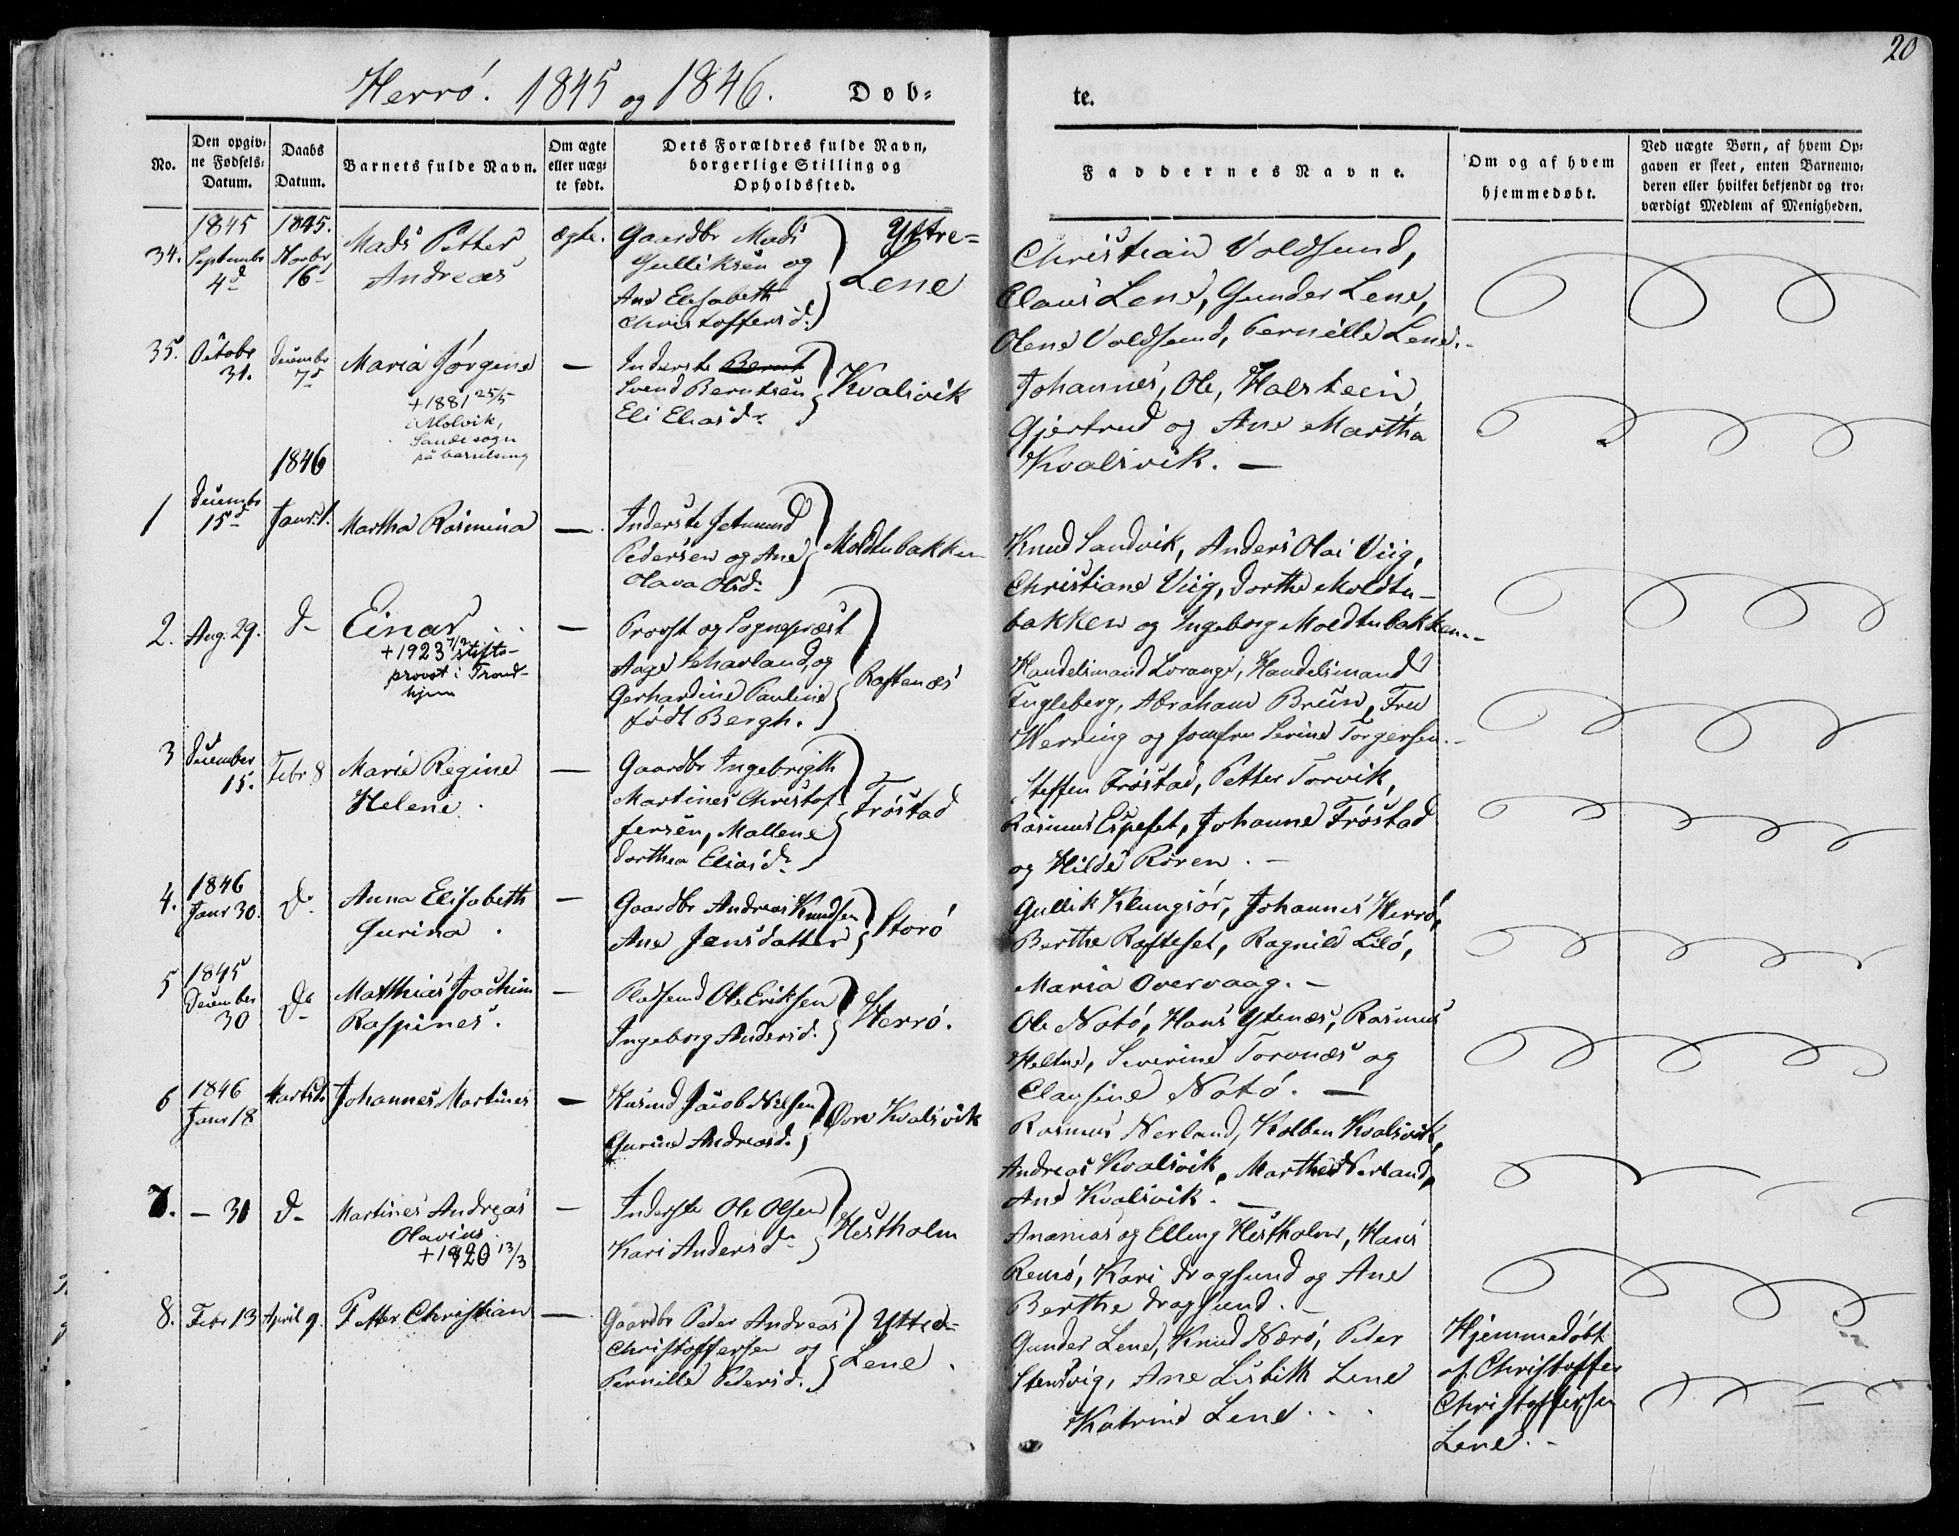 20
Herrö. 1845 og 1846. Døb-
te.
No.
Den opgiv-
ne Fødsels-
Datum.
Daabs
Datum.
Barnets fulde Navn.
Om ægte
eller uæg-
te født.
Dets Forældres fulde Navn,
borgerlige Stilling og
Opholdssted.
Faddernes Navne.
Om og af hvem
hjemmedøbt.
Ved uægte Børn, af hvem Op-
gaven er skeet, enten Barnemo-
deren eller hvilket bekjendt og tro-
værdigt Medlem af Menigheden.
34.
1845
Septembr
4d
1845.
Novbr
16d
Mads Petter
Andreas
ægte.
Gaardbr Mads
Gulliksen og
Ane Elisabeth
Christoffersd.
Yttre-
Lene
Christian Voldsund,
Claus Lene, Gunder Lene,
Olene Voldsund, Pernille Lene.
35.
Octobr
31.
Decembr
7d
Maria Jörgine
+1881 25/5
i Molvik,
Sande sogn
på barselseng
—
Inderste Bernt
Svend Berntsen
Eli Eliasdr
Kvalsvik
Johannes, Ole, Halstein,
Gjertrud og Ane Martha
Kvalsvik. —
1846
1
Decembr
15d
Janr. 1.
Martha Rasmina
—
Inderste Jetmund
Pedersen og Ane
Olava Olsd.
Moldtubakken
Knud Sandvik, Anders Olai Viig,
Christiane Viig, Dorthe Moldtu-
bakken og Ingeborg Moldtubakken.-
2.
Aug. 29.
do
Einar.
+1923 7/2 stifts-
provst i Trond-
hjem
—
Provst og Sognepræst
Aage Scharland, og
Gerhardine Pauline
født Bergh.
Raftenæs
Handelsmand Lorange, Handelsmand
Engleberg, Abraham Brün, Fru
Werring og Jomfru Serine Torgersen.-
3
December
15.
Febr 8
Marie Regine
Helene.
—
Gaardbr Ingebrigth
Martines Christof-
fersen, Mallene
Dorthea Eliasdr
Fröstad
Steffen Fröstad, Petter Torvik,
Rasmus Espeset, Johanne Fröstad
og Hilde Rören. -
4.
1846
Janr 30.
do
Anna Elisabeth
Gurina.
—
Gaardbr Andreas Knudsen
Ane Jensdatter
Storö
Gullik Klungsör, Johannes Herrö,
Berthe Rafteset, Ragnild Lilö,
Maria Overvaag. -
5
1845
December
30
do
Matthias Joachim
Raspines.
—
Pladsmd Ole Eriksen
Ingeborg Andersd.
Herrö.
Ole Notö, Hans Ytenæs, Rasmus
Heltne, Severine Torvnæs og
Clausine Notö. —
6
1846
Janr 18
Johannes Martines
—
Husmd Jacob Nilsen
Gurine Andreasd.
Övre Kvalsvik
Rasmus Nerland, Kolben Kvalsvik,
Andreas Kvalsvik, Marthe Nerland,
Ane Kvalsvik. —
7.
— 31
do
Martines Andreas
Olavius.
+1920 13/3
—
Inderste Ole Olsen
Kari Andersdr
Hestholm
Ananias og Elling Hestholm, Hans
Remö, Kari Dragsund og Ane
Berthe Dragsund. -
8.
Febr 13
April 9.
Petter Christian
—
Gaardbr Peder Andreas
Christoffersen og
Pernille Pedersd.
Yttre-
Lene.
Gunder Lene, Knud Nærö, Peder
Stensvig, Ane Lisbeth Lene
Katrine Lene. . .
Hjemmedøbt
af Christoffer
Christoffersen
Lene. -